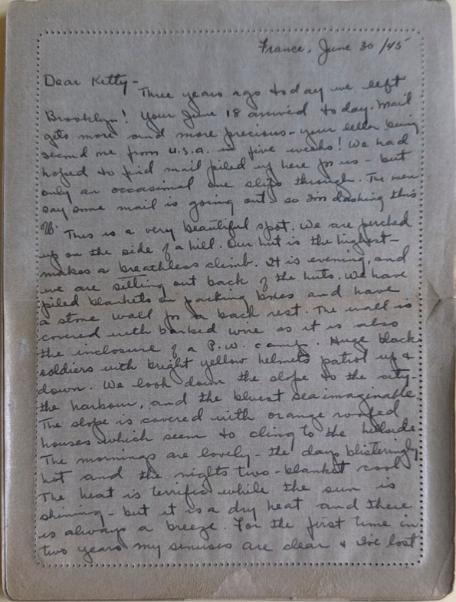 France, June 30/45
Dear Kitty-
Three years ago today we left
Brooklyn! Your June 18 arrived today. Mail
gets more and more precious - your letter being
second me from U.S.A. in five weeks! We had
hoped to find mail piled up here for us - but
only an occasional one slips through. The men
say some mail is going out so I'm dashing this
This is a very beautiful spot. We are perched
up on the side of a hill. Our hut is the highest -
makes a breathless climb. It is evening, and
we are sitting out back of the huts. We have
piled blankets on packing boxes and have
a stone wall for a back rest. The wall is
covered with barbed wire as it is also
the inclosure of a P.W. camp. Huge black
soldiers with bright yellow helmets patrol up &
down. We look down the slope to the city
the harbour, and the bluest sea imaginable
The slope is covered with orange roofed
houses which seem to cling to the hillside
The mornings are lovely - the days blisteringly
hot and the nights two-blanket cool
The heat is terrific while the sun is
shining - but it is a dry heat and there
is always a breeze. For the first time in
two years my sinuses are clear & I've lost